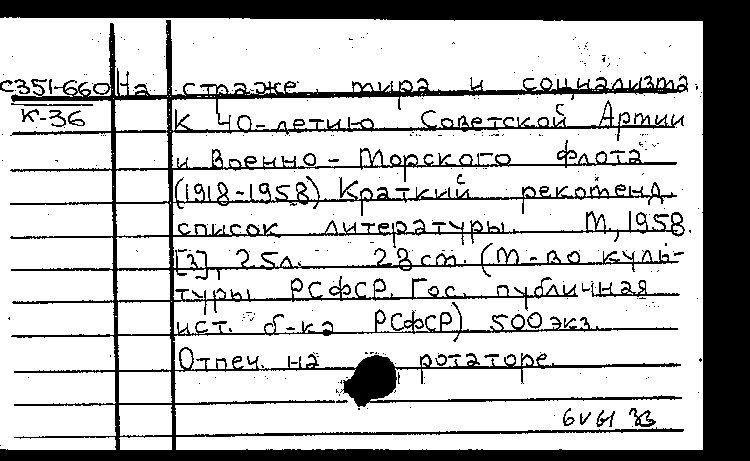 С351-660 На страже мира и социализма.
К-36 К 40-летию Советской Армии
и Военно-Морского флота
(1918-1958) Краткий рекоменд.
список литературы. М., 1958.
[3], 25л. 28 cm. (М-во куль-
туры РСФСР. Гос. публичная
ист. б-ка РСФСР) 500 экз.
Отпеч. на ротаторе.